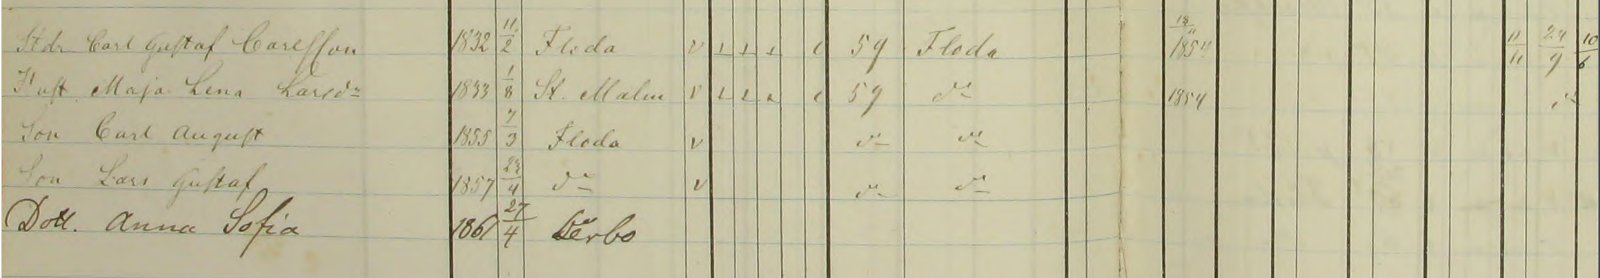 Stdr Carl Gustaf Carlsson 1832 11/2 Floda v 59 Floda 18/11 1854 11/11 24/9 10/6
Hust. Maja Lena Larsdr 1833 1/8 St. Malm v 59 do 1854 do
Son Carl August 1855 7/3 Floda v do do
Son Lars Gustaf 1857 23/4 do v do do
Dott. Anna Sofia 1861 27/4 Lerbo